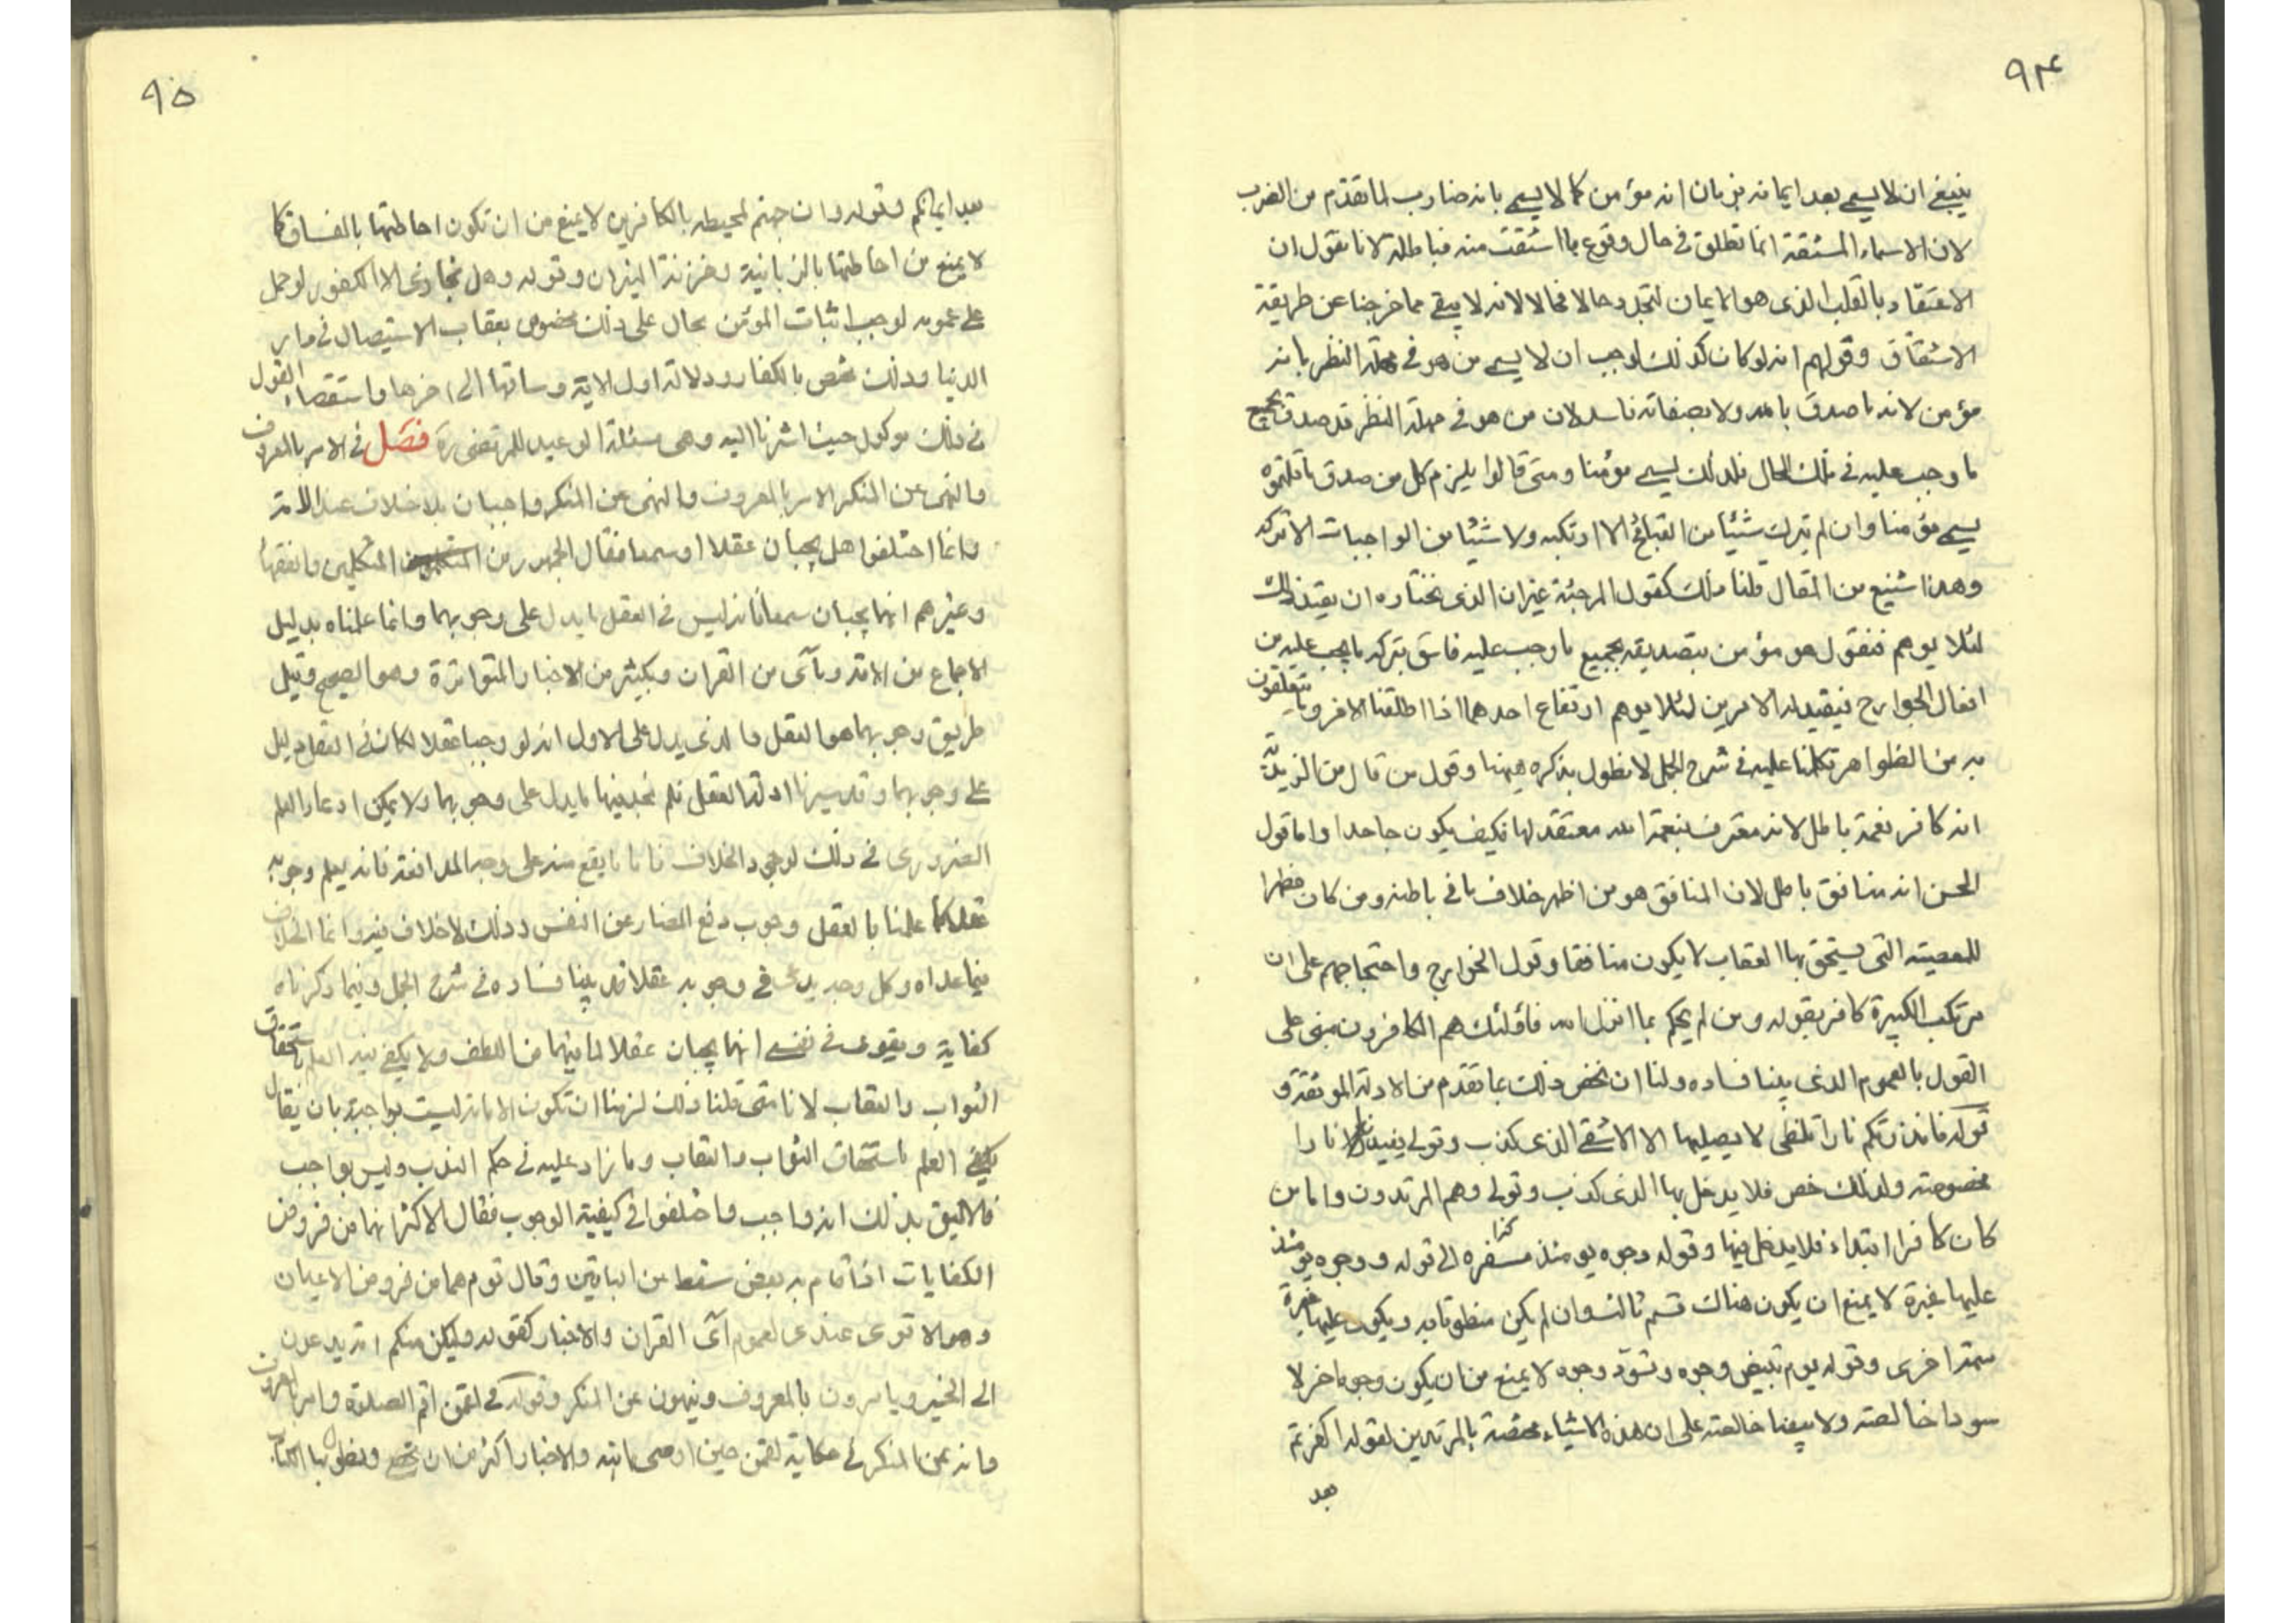 ٩٤
ينبغى ان لا يسمى بعد ايمانه بزمان انه مؤمن كما لا يسمى بانه ضارب لما تقدم من الضرب
لان الاسماء المشتقة انما تطلق فى حال وقوع ما اشتقت منه فباطلة لانا نقول ان
الاعتقاد بالقلب الذى هو الايمان يتجدد حالا فحالا لانه لا يبقى مما خرجنا عن طريقة
الاشتقاق وقولهم انه لو كان كذلك لوجب ان لا يسمى من هو فى مهلة النظر بانه
مؤمن لانه ما صدق بالله ولا بصفاته فاسد لان من هو فى مهلة النظر قد صدق بجميع
ما وجب عليه فى تلك الحال فلذلك يسمى مؤمنا ومتى قالوا يلزم كل من صدق ما قلتموه
يسمى مؤمنا وان لم يترك شيئا من القبائح الا ارتكبه ولا شيئا من الواجبات الا تركه
وهذا شنيع من المقال قلنا ذلك كقول المرجئة غير ان الذى نختاره ان يقيد ذلك
لئلا يوهم فنقول هو مؤمن بتصديقه بجميع ما وجب عليه فاسق بتركه ما يجب عليه من
افعال الجوارح فيقيد له الامرين لئلا يوهم ارتفاع احدهما اذا اطلقنا الاخر وما يتعلقون
به من الظواهر تكلمنا عليه فى شرح الجمل لا نطول بذكره هيهنا وقول من قال من الزيدية
انه كافر نعمة باطل لانه معترف بنعمة الله معتقد لها فكيف يكون جاحدا واما قول
الحسن انه منافق باطل لان المنافق هو من اظهر خلاف ما فى باطنه ومن كان مظهرا
للمعصيته التى يستحق بها العقاب لا يكون منافقا وقول الخوارج واحتجاجهم على ان
مرتكب الكبيرة كافر بقوله ومن لم يحكم بما انزل الله فاؤلئك هم الكافرون مبنى على
القول بالعموم الذى بينا فساده ولنا ان نخص ذلك بما تقدم من الادلة الموثقة و
قوله فانذرتكم نارا تلظى لا يصليها الا الاشقى الذى كذب وتولى يفيد نارا
مخصوصته ولذلك خص فلا يدخل بها الذى كذب وتولى وهم المرتدون واما من
كان كافرا ابتداء فلا يدخل فيها وقوله وجوه يومئذ مسفره الى قوله ووجوه يومئذ
عليها غبرة لا يمنع ان يكون هناك قسم ثالث وان لم يكن منطوقا به ويكون عليها غبرة
سمة اخرى وقوله يوم تبيض وجوه وتسود وجوه لا يمنع من ان يكون وجوها اخر لا
سودا خالصته ولا بيضا خالصته على ان هذه الاشياء مختصة بالمرتدين لقوله اكفرتم
بعد
٩٥
بعد ايمانكم وقوله وان جهنم لمحيطه بالكافرين لا يمنع من ان تكون احاطتها بالفساق كما
لا يمنع من احاطتها بالزبانية وخزنة النيران وقوله وهل نجازى الا الكفور لو حمل
على عمومه لوجب اثبات المؤمن بحال على ذلك مخصوص بعقاب الاستيصال فى دار
الدنيا وذلك مختص بالكفار ودلالة اول الاية وسياقها الى اخرها واستقصاء القول
فى ذلك موكول حيث اشرنا اليه وهى مسئلة الوعيد للمرتضى ره فصل فى الامر بالمعروف
والنهى عن المنكر الامر بالمعروف والنهى عن المنكر واجبان بلا خلاف عند الامة
وانما اختلفوا هل يجبان عقلا او سمعا فقال الجمهور من المتكلمين والفقهاء
وغيرهم انهما يجبان سمعا فانه ليس فى العقل ما يدل على وجوبهما وانما علمناه بدليل
الاجماع من الامة وبآى من القران وبكثير من الاخبار المتواترة وهو الصحيح وقيل
طريق وجوبهما هو العقل والذى يدل على الاول انه لو وجبا عقلا لكان فى العقل دليل
على وجوبهما وقد سبرنا ادلة العقل فلم نجد فيها ما يدل على وجوبهما ولا يمكن ادعاء العلم
الضرورى فى ذلك لوجود الخلاف فاما ما يقع منه على وجه المدافعة فانه يعلم وجوبه
عقلا كما علمنا بالعقل وجوب دفع المضار عن النفس وذلك لا خلاف فيه وانما الخلاف
فيما عداه وكل وجه يدعى فى وجوبه عقلا قد بينا فساده فى شرح الجمل وفيما ذكرناه
كفاية ويقوى فى نفسى انهما يجبان عقلا لما فيهما من اللطف ولا يكفى فيه العلم باستحقاق
الثواب والعقاب لانا متى قلنا ذلك لزمنا ان تكون الامامة ليست بواجبة بان يقال
يكفى العلم باستحقاق الثواب والعقاب وما زاد عليه فى حكم الندب وليس بواجب
فالاليق بذلك انه واجب واختلفوا فى كيفية الوجوب فقال الاكثر انهما من فروض
الكفايات اذا قام به بعض سقط عن الباقين وقال قوم هما من فروض الاعيان
وهو الاقوى عندى لعموم آى القران والاخبار كقوله ولتكن منكم امة يدعون
الى الخير ويامرون بالمعروف وينهون عن المنكر وقوله فى لقمن اقم الصلوة وامر بالمعروف
وانه عن المنكر فى حكاية لقمن حين اوصى ابنه والاخبار اكثر من ان تحصى ونطول بها الكتاب